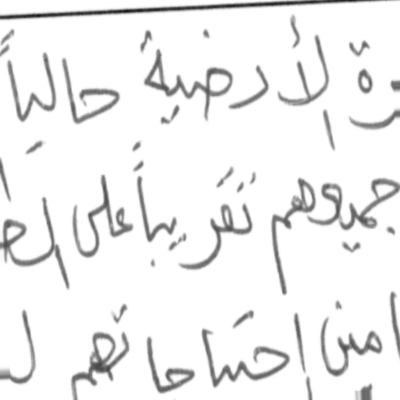 رة الأرضية حالياً
جميعهم تقريباً على
امين احتياجاتهم